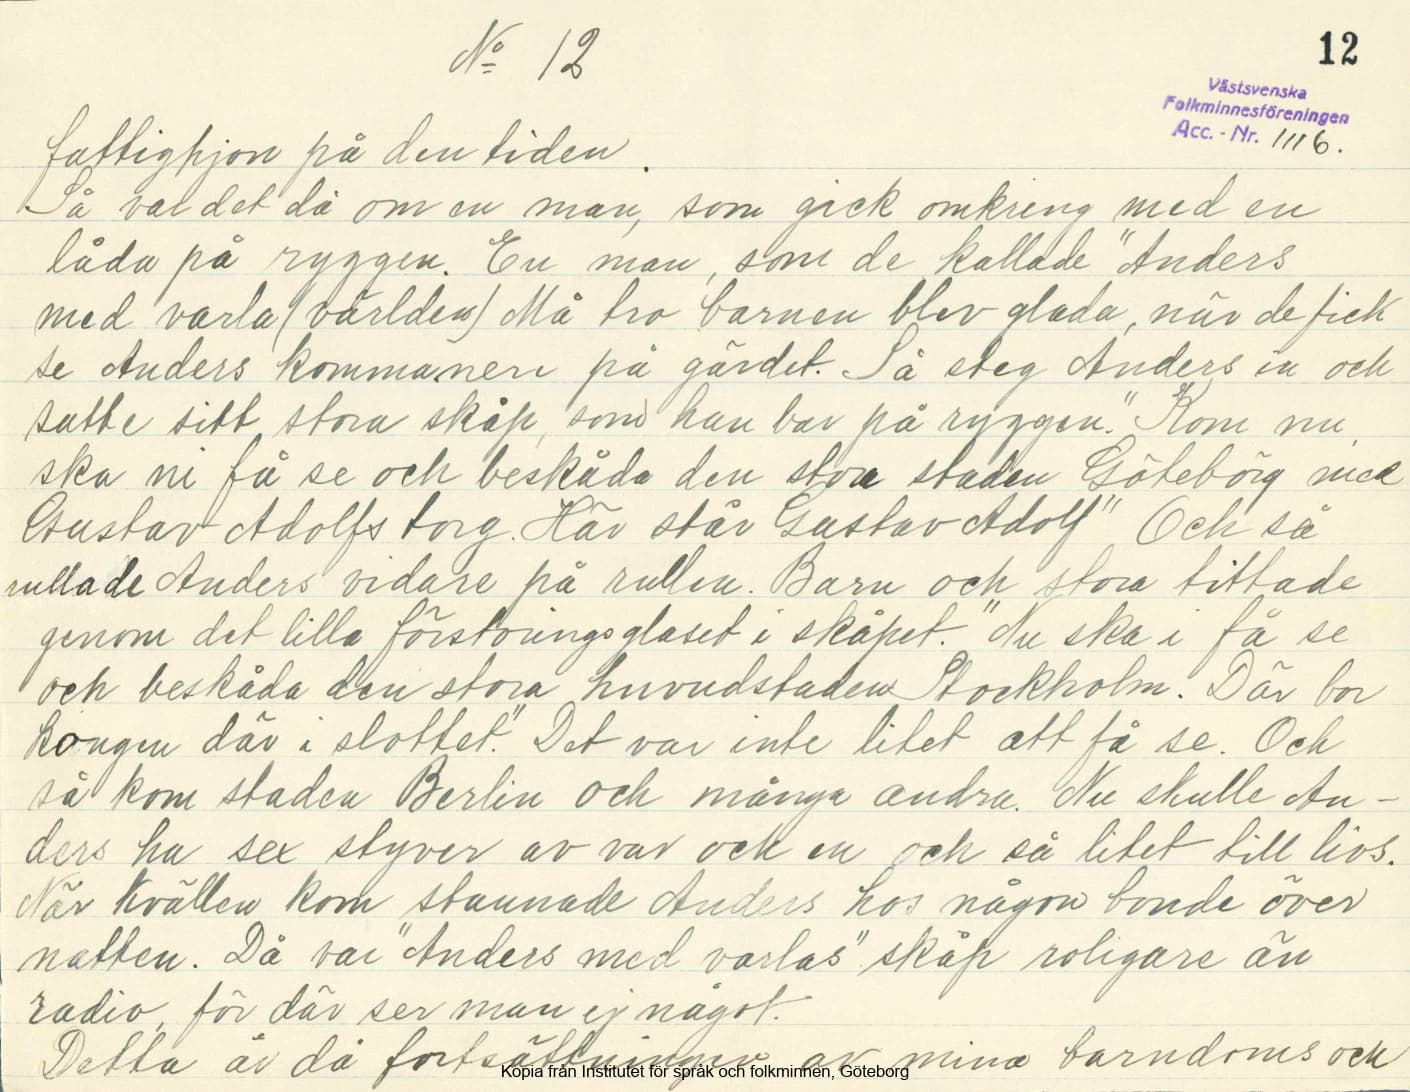 No 12
12
Västsvenska
Folkminnesföreningen
Acc. - Nr. 1116.
fattighjon på den tiden.
Så var det då om en man, som gick omkring med en
låda på ryggen. En man, som de kallade "Anders
med varla (världen) Må tro barnen blev glada, när de fick
se Anders kommanere på gärdet. Så steg Anders in och
satte sitt stora skåp, som han bar på ryggen." Kom nu,
ska ni få se och beskåda den stora staden Göteborg med
Gustav Adolfs torg. Här står Gustav Adolf" Och så
rullade Anders vidare på rullen. Barn och stora tittade
genom det lilla förstoringsglaset i skåpet. "Nu ska i få se
och beskåda den stora huvudstaden Stockholm. Där bor
kongen där i slottet." Det var inte litet att få se. Och
så kom staden Berlin och många andra. Nu skulle An-
ders ha sex styver av var och en och så litet till livs.
När kvällen kom stannade Anders hos någon bonde över
natten. Då var "Anders med varlas" skåp roligare än
radio, för där ser man ej något.
Detta är då fortsättningen av mina barndoms och
Kopia från Institutet för språk och folkminnen, Göteborg